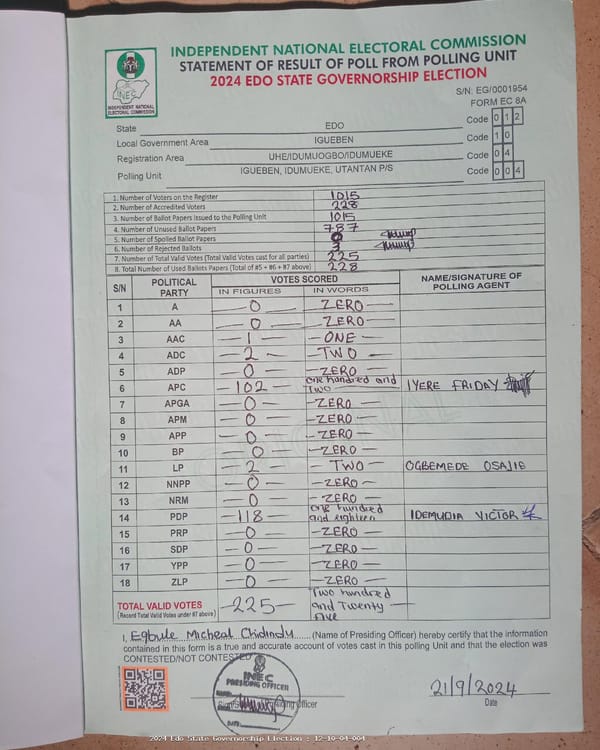 INDEPENDENT NATIONAL ELECTORAL COMMISSION
STATEMENT OF RESULT OF POLL FROM POLLING UNIT
2024 EDO STATE GOVERNORSHIP ELECTION
INEC
INDEPENDENT NATIONAL
ELECTORAL COMMISSION
S/N: EG/0001954
FORM EC 8A
State EDO Code 0 1 2
Local Government Area IGUEBEN Code 1 0
Registration Area UHE/IDUMUOGBO/IDUMUEKE Code 0 4
Polling Unit IGUEBEN, IDUMUEKE, UTANTAN P/S Code 0 0 4
1. Number of Voters on the Register 1015
2. Number of Accredited Voters 228
3. Number of Ballot Papers Issued to the Polling Unit 1015
4. Number of Unused Ballot Papers 787
5. Number of Spoiled Ballot Papers
6. Number of Rejected Ballots 3
7. Number of Total Valid Votes (Total Valid Votes cast for all parties) 225
8. Total Number of Used Ballots Papers (Total of #5 + #6 + #7 above) 228
S/N POLITICAL PARTY VOTES SCORED NAME/SIGNATURE OF POLLING AGENT
IN FIGURES IN WORDS
1 A 0 ZERO
2 AA 0 ZERO
3 AAC 1 ONE
4 ADC 2 TWO
5 ADP 0 ZERO
6 APC 102 One hundred and Two IYERE FRIDAY
7 APGA 0 ZERO
8 APM 0 ZERO
9 APP 0 ZERO
10 BP 0 ZERO
11 LP 2 TWO OGBEMEDE OSAJIE
12 NNPP 0 ZERO
13 NRM 0 ZERO
14 PDP 118 One hundred and eighteen IDEMUDIA VICTOR
15 PRP 0 ZERO
16 SDP 0 ZERO
17 YPP 0 ZERO
18 ZLP 0 ZERO
TOTAL VALID VOTES 225 Two hundred and Twenty Five
(Record Total Valid Votes under #7 above)
I, Egbule Micheal Chidindu (Name of Presiding Officer) hereby certify that the information
contained in this form is a true and accurate account of votes cast in this polling Unit and that the election was
CONTESTED/NOT CONTESTED
INEC
PRESIDING OFFICER
DATE:
21/9/2024
Date
2024 Edo State Governorship Election : 12-10-04-004